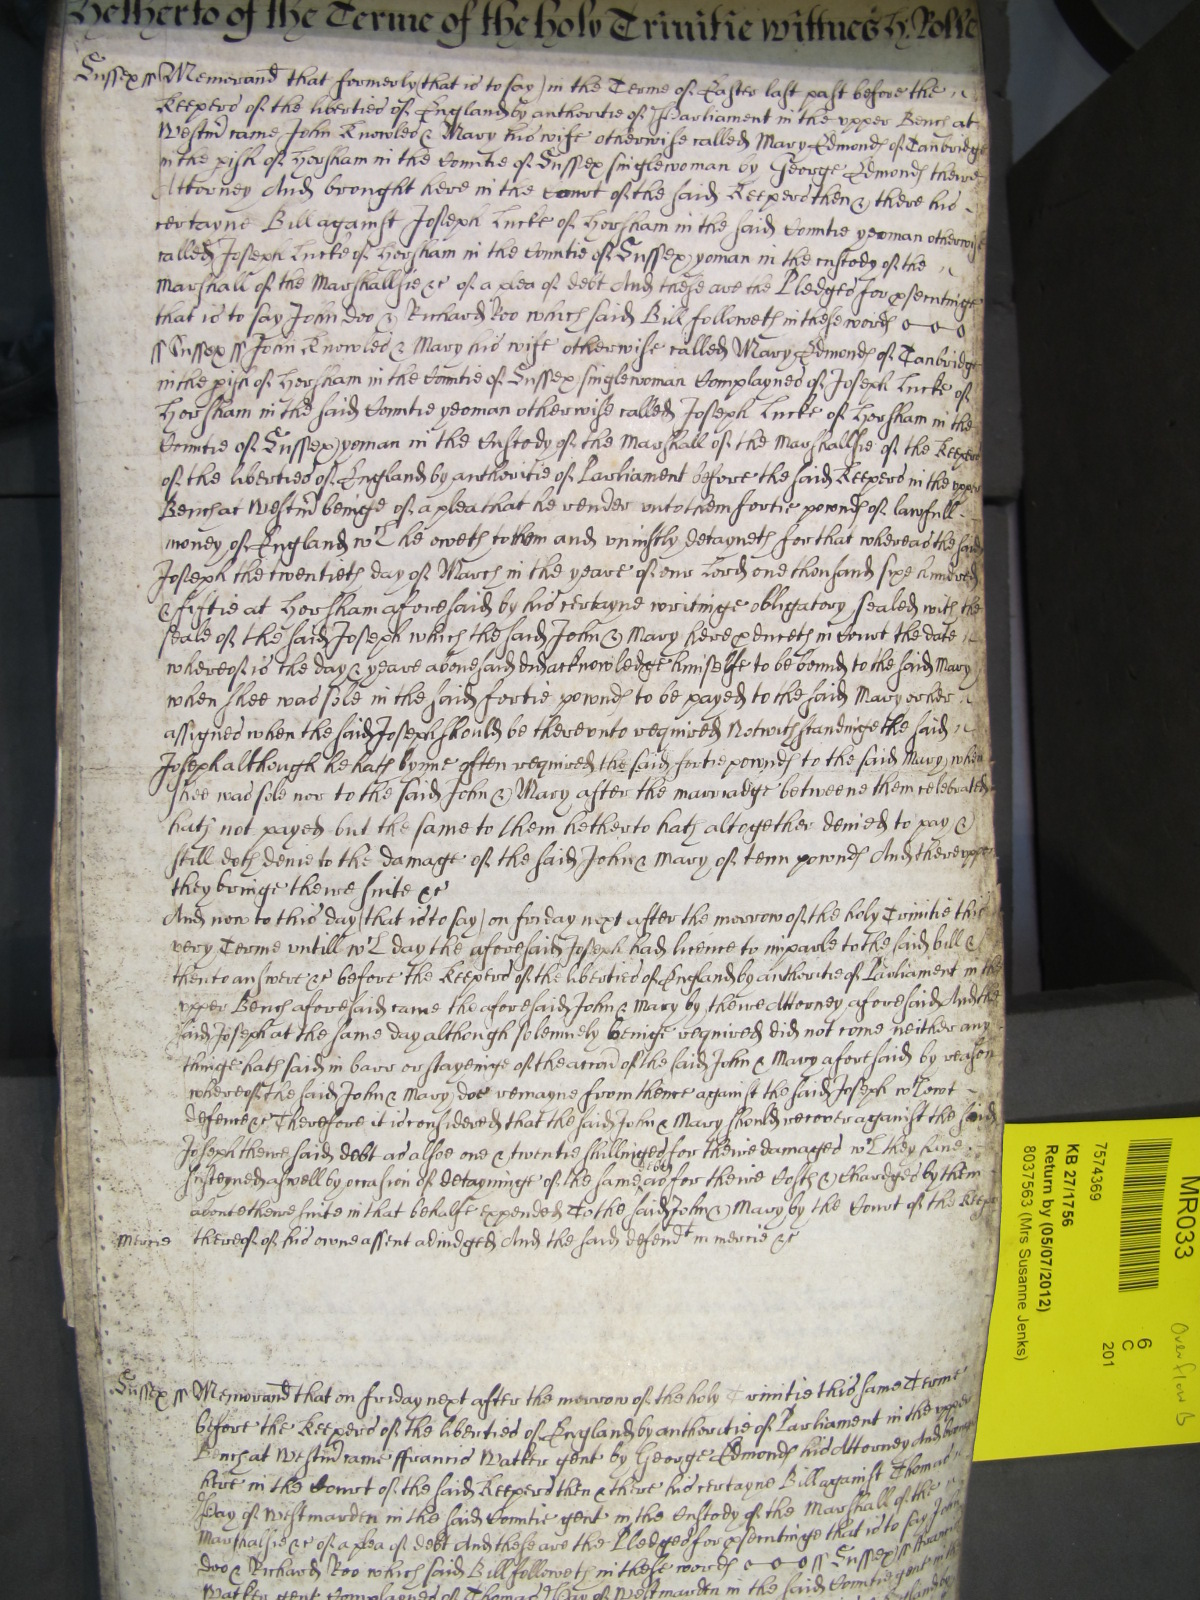 Hetherto of the Terme of the holy Trinitie wittnes H: Rolle
Sussex ss Memorand that formerly (that is to say) in the Terme of Easter last past before the
Keepers of the liberties of England by authoritie of Parliament in the upper Bench at
Westm came John Knowles & Mary his wife otherwise called Mary Edmonds of Tanbridge
in the pish of Horsham in the Countie of Sussex singlewoman by George Edmonds theire
Attorney And brought here in the Court of the said Keepers then & there his
certayne Bill against Joseph Lucke of Horsham in the said Countie yeoman otherwise
called Joseph Lucke of Horsham in the Countie of Sussex yoman in the custody of the
Marshall of the Marshallsie &c of a plea of debt And these are the Pledges for psecutinge
that is to say John Doo & Richard Roo which said Bill followeth in these words
ss Sussex ss John Knowles & Mary his wife otherwise called Mary Edmonds of Tanbridge
in the pish of Horsham in the Countie of Sussex singlewoman Complaynes of Joseph Lucke of
Horsham in the said Countie yeoman otherwise called Joseph Lucke of Horsham in the
Countie of Sussex yoman in the Custody of the Marshall of the Marshallsie of the Keepers
of the liberties of England by authoritie of Parliament before the said Keepers in the upper
Bench at Westm beinge of a plea that he render unto them fortie pownds of lawfull
money of England wch he oweth to them and uniustly detayneth for that whereas the said
Joseph the twentieth day of March in the yeare of our Lord one thousand sixe hundred
& fiftie at Horsham aforesaid by his certayne writinge obligatory sealed with the
seale of the said Joseph which the said John & Mary here pduceth in Court the date
whereof is the day & yeare abovesaid did acknowledge himselfe to be bound to the said Mary
when shee was sole in the said fortie pownds to be payed to the said Mary or her
assignes when the said Joseph should be thereunto required Notwithstandinge the said
Joseph although he hath byme often required the said fortie pownds to the said Mary when
shee was sole nor to the said John & Mary after the marriadge betweene them celebrated
hath not payed but the same to them hetherto hath altogether denied to pay &
still doth denie to the damage of the said John & Mary of tenn pownds And thereuppon
they bringe theire suite &c
And now to this day (that is to say) on friday next after the morrow of the holy Trinitie this
very Terme untill wch day the aforesaid Joseph had licence to imparle to the said bill &
then to answere &c before the Keepers of the liberties of England by authoritie of Parliament in the
upper Bench aforesaid came the aforesaid John & Mary by theire Attorney aforesaid And the
said Joseph at the same day although solemnely beinge required did not come neither any
thinge hath said in barr or stayeinge of the accon of the said John & Mary aforesaid by reason
whereof the said John & Mary doe remayne from thence against the said Joseph wthout
defence &c Therefore it is considered that the said John & Mary should recover against the said
Joseph theire said debt as alsoe one & twentie shillinges for theire damages wch they have
susteyned aswell by occasion of detayninge of the same debt as for theire Costs & Chardges by them
about theire suite in that behalfe expended To the said John & Mary by the Court of the Keepers
Mercie thereof of his owne assent adiudged And the said defendt in mercie &c
Sussex ss Memorand that on friday next after the morrow of the holy Trinitie this same Terme
before the Keepers of the liberties of England by authoritie of Parliament in the upper
Bench at Westm came ffrancis Watker gent by George Edmonds his Attorney And brought
here in the Court of the said Keepers then & there his certayne Bill against Thomas
Hay of Westmarden in the said Countie gent in the Custody of the Marshall of the
Marshalsie &c of a plea of debt And these are the Pledges for psecutinge that is to say John
Doo & Richard Roo which said Bill followeth in these words ss Sussex ss ffrancis
Watker gent Complaynes of Thomas Hay of Westmarden in the said Countie gent in the
MR033
7574369
KB 27/1756
Return by (05/07/2012)
8037563 (Mrs Susanne Jenks)
6
C
201
Overflow B